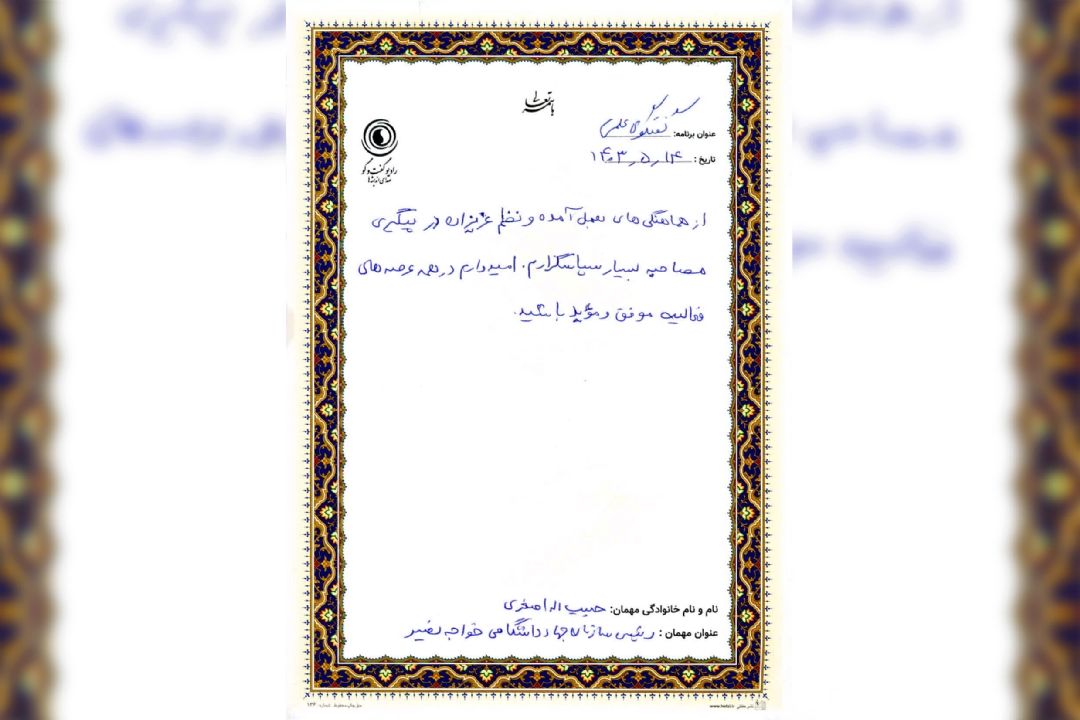 باسمه تعالی
عنوان برنامه: گفتگوی علمی
تاریخ: ۱۴۰۳٫۵٫۱۴
رادیو گفت و گو
صدای اندیشه‌ها
از هماهنگی های بعمل آمده و نظم عزیزان در پیگیری
مصاحبه بسیار سپاسگزارم. امیدوارم در همه عرصه های
فعالیت موفق و مؤید باشید.
نام و نام خانوادگی مهمان: حبیب اله اصغری
عنوان مهمان: رئیس سازمان جهاد دانشگاهی خواجه نصیر
www.heda.ir